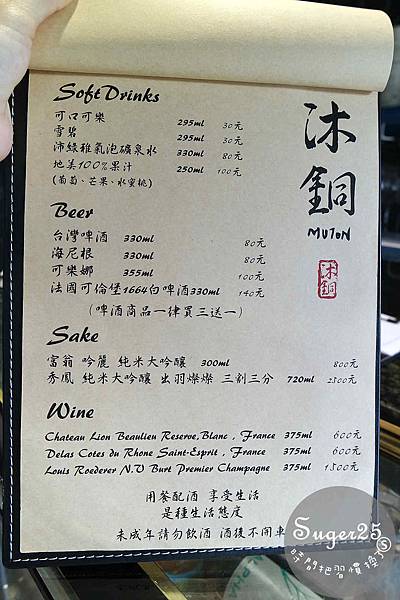 Soft Drinks
可口可樂 295ml 30元
雪碧 295ml 30元
沛綠雅氣泡礦泉水 330ml 80元
地美100%果汁 250ml 100元
(葡萄、芒果、水蜜桃)
沐銅
MUTON
沐銅
Beer
台灣啤酒 330ml 80元
海尼根 330ml 80元
可樂娜 355ml 100元
法國可倫堡1664白啤酒330ml 140元
(啤酒商品一律買三送一)
Sake
富翁 吟麗 純米大吟釀 300ml 800元
秀鳳 純米大吟釀 出羽燦燦 三割三分 720ml 2800元
Wine
Chateau Lion Beaulieu Reserve,Blanc , France 375ml 600元
Delas Cotes du Rhone Saint-Esprit , France 375ml 600元
Louis Roederer N.V Burt Premier Champagne 375ml 1,500元
用餐配酒 享受生活
是種生活態度
未成年請勿飲酒 酒後不開車
Suger25
時間把習慣換了